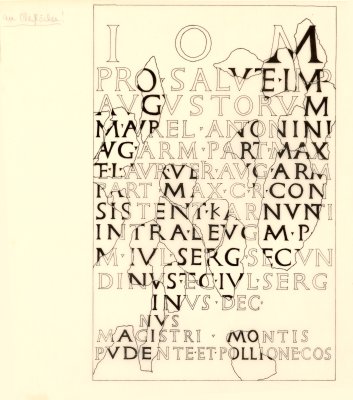 I O M
PRO·SALVTE·IMP
AVGVSTORVM
M·AVREL·ANTONINI
AVG·ARM·PART·MAX
ET·L·AVREL·VER·AVG·ARM
PART·MAX·C·R·CON
SISTENT·KARNVNTI
INTRA·LEVG·M·P
M·IVL·SERG·SECVN
DINVS·ET·C·IVL·SERG
INVS·DEC
NVS
MAGISTRI·MONTIS
PVDENTE·ET·POLLIONE·COS